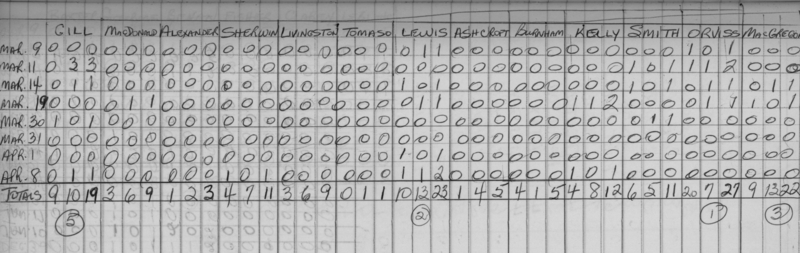 GILL MACDONALD ALEXANDER SHERWIN LIVINGSTON TOMASO LEWIS ASHCROFT BURNHAM KELLY SMITH ORVISS MACGREGO
MAR. 9 0 0 0 0 0 0 0 0 0 0 0 0 0 0 0 0 0 0 0 1 1 0 0 0 0 0 0 0 0 0 0 0 0 1 0 1 0 0 0
MAR. 11 0 3 3 0 0 0 0 0 0 0 0 0 0 0 0 0 0 0 0 0 0 0 0 0 0 0 0 0 0 0 1 0 1 1 1 2 0 0 0
MAR. 14 0 1 1 0 0 0 0 0 0 0 0 0 0 0 0 0 0 0 1 0 1 0 0 0 0 0 0 0 0 0 1 0 1 0 1 1 0 1 1
MAR. 19 0 0 0 0 1 1 0 0 0 0 0 0 0 0 0 0 0 0 0 1 1 0 0 0 0 0 0 1 1 2 0 0 0 0 1 1 1 0 1
MAR. 30 1 0 1 0 0 0 0 0 0 0 0 0 0 0 0 0 0 0 0 0 0 0 0 0 0 0 0 0 0 0 0 1 1 0 0 0 0 0 0
MAR. 31 0 0 0 0 0 0 0 0 0 0 0 0 0 0 0 0 0 0 0 0 0 0 0 0 0 0 0 0 0 0 0 0 0 0 0 0 0 0 0
APR. 1 0 0 0 0 0 0 0 0 0 0 0 0 0 0 0 0 0 0 1 0 1 0 0 0 0 0 0 0 0 0 0 0 0 0 0 0 0 0 0
APR. 8 0 1 1 0 0 0 0 0 0 1 0 1 0 0 0 0 0 0 1 1 2 0 0 0 0 0 0 1 0 1 0 0 0 0 0 0 0 0 0
TOTALS 9 10 19 3 6 9 1 2 3 4 7 11 3 6 9 0 1 1 10 13 23 1 4 5 4 1 5 4 8 12 6 5 11 20 7 27 9 13 22
5 2 1 3